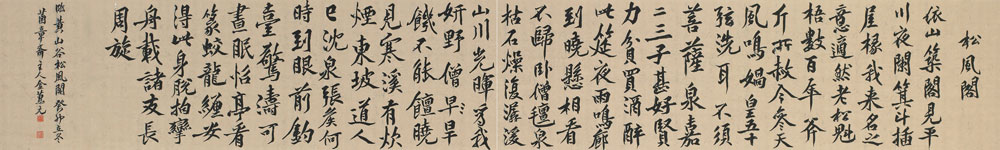 松風閣
依山築閣見平
川夜闌箕斗插
屋椽我來名之
意適然老松魁
梧數百年斧
斤所赦今參天
風鳴媧皇五十
弦洗耳不須
菩薩泉嘉
二三子甚好賢
力貧買酒醉
此筵夜雨鳴廊
到曉懸相看
不歸臥僧氈泉
枯石燥復潺湲
山川光暉為我
妍野僧早旱
饑不能饘曉
見寒溪有炊
煙東坡道人
已沈泉張侯何
時到眼前釣
臺驚濤可
晝眠怡亭看
篆蛟龍纏安
得此身脫拘攣
舟載諸友長
周旋
臨黃山谷松風閣 癸卯立冬
章齋主人金蕙元